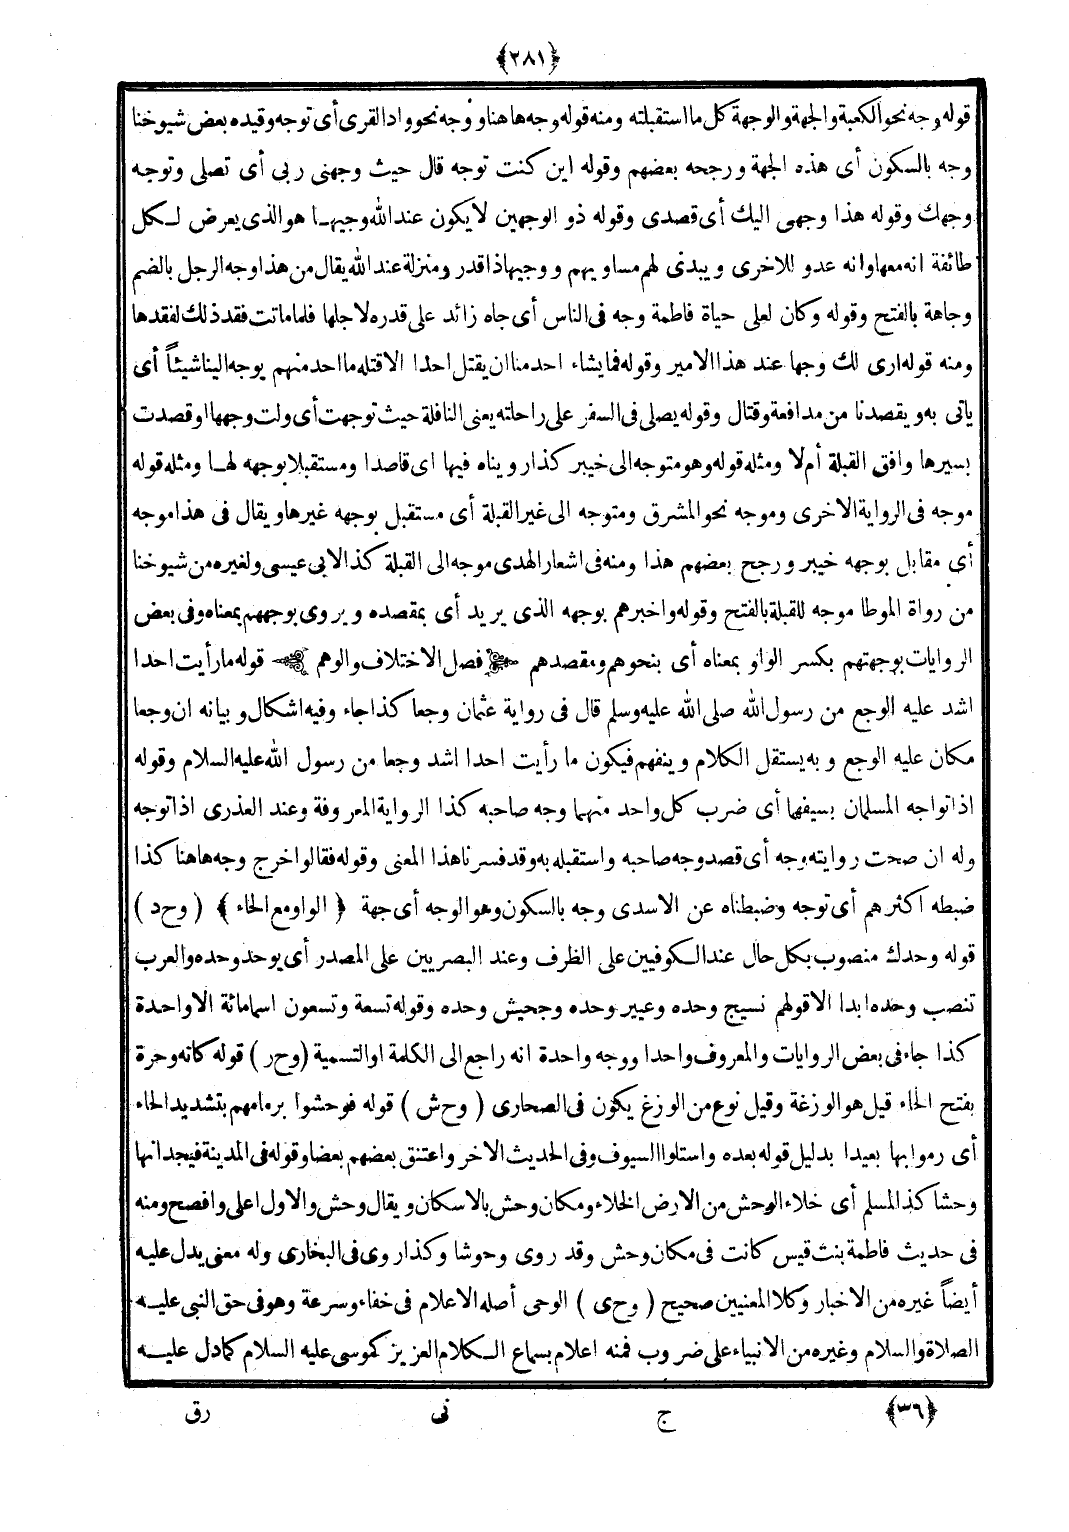 ﴿٢٨١﴾
قوله وجه نحو الكعبة والجهة والوجهة كل ما استقبلته ومنه قوله وجه هاهنا ووجه نحو واد القرى أى توجه وقيده بعض شيوخنا
وجه بالسكون أى هذه الجهة ورجحه بعضهم وقوله اين كنت توجه قال حيث وجهنى ربى أى تصلى وتوجه
وجهك وقوله هذا وجهى اليك أى قصدى وقوله ذو الوجهين لا يكون عند الله وجيها هو الذى يعرض لكل
طائفة انه معها وانه عدو للاخرى ويبدى لهم مساويهم ووجيها ذا قدر ومنزلة عند الله يقال من هذا وجه الرجل بالضم
وجاهة بالفتح وقوله وكان لعلى حياة فاطمة وجه فى الناس أى جاه زائد على قدره لاجلها فلما ماتت فقد ذلك لفقدها
ومنه قوله ارى لك وجها عند هذا الامير وقوله فما يشاء احد منا ان يقتل احدا الا قتله ما احد منهم يوجه الينا شيئاً أى
ياتى به ويقصدنا من مدافعة وقتال وقوله يصلى فى السفر على راحلته يعنى النافلة حيث توجهت أى ولت وجهها او قصدت
بسيرها وافق القبلة أم لا ومثله قوله وهو متوجه الى خيبر كذا رويناه فيها اى قاصدا ومستقبلا بوجهه لها ومثله قوله
موجه فى الرواية الاخرى وموجه نحو المشرق ومتوجه الى غير القبلة أى مستقبل بوجهه غيرها ويقال فى هذا موجه
أى مقابل بوجهه خيبر ورجح بعضهم هذا ومنه فى اشعار الهدى موجه الى القبلة كذا لابى عيسى ولغيره من شيوخنا
من رواة الموطا موجه للقبلة بالفتح وقوله واخبرهم بوجهه الذى يريد أى بمقصده ويروى بوجههم بمعناه وفى بعض
الروايات بوجهتهم بكسر الواو بمعناه أى بنحوهم ومقصدهم فصل الاختلاف والوهم قوله ما رأيت احدا
اشد عليه الوجع من رسول الله صلى الله عليه وسلم قال فى رواية عثمان وجعا كذا جاء وفيه اشكال وبيانه ان وجعا
مكان عليه الوجع وبه يستقل الكلام وينفهم فيكون ما رأيت احدا اشد وجعا من رسول الله عليه السلام وقوله
اذا تواجه المسلمان بسيفهما أى ضرب كل واحد منهما وجه صاحبه كذا الرواية المعروفة وعند العذرى اذا توجه
وله ان صحت روايته وجه أى قصد وجه صاحبه واستقبله به وقد فسرنا هذا المعنى وقوله فقالوا خرج وجه هاهنا كذا
ضبطه اكثرهم أى توجه وضبطناه عن الاسدى وجه بالسكون وهو الوجه أى جهة ﴿ الواو مع الحاء ﴾ ( وحد )
قوله وحدك منصوب بكل حال عند الكوفيين على الظرف وعند البصريين على المصدر أى يوحد وحده والعرب
تنصب وحده ابدا الا قولهم نسيج وحده وعيير وحده وجحيش وحده وقوله تسعة وتسعون اسما مائة الا واحدة
كذا جاء فى بعض الروايات والمعروف واحدا ووجه واحدة انه راجع الى الكلمة او التسمية ( وحر ) قوله كانه وحرة
بفتح الحاء قيل هو الوزغة وقيل نوع من الوزغ يكون فى الصحارى ( وحش ) قوله فوحشوا برمامهم بتشديد الحاء
أى رموا بها بعيدا بدليل قوله بعده واستلوا السيوف وفى الحديث الاخر واعتنق بعضهم بعضا وقوله فى المدينة فيجدانها
وحشا كذا لمسلم أى خلاء الوحش من الارض الخلاء ومكان وحش بالاسكان ويقال وحش والاول اعلى وافصح ومنه
فى حديث فاطمة بنت قيس كانت فى مكان وحش وقد روى وحوشا وكذا روى فى البخارى وله معنى يدل عليه
أيضاً غيره من الاخبار وكلا المعنيين صحيح ( وحى ) الوحى أصله الاعلام فى خفاء وسرعة وهو فى حق النبى عليه
الصلاة والسلام وغيره من الانبياء على ضروب فمنه اعلام بسماع الكلام العزيز كموسى عليه السلام كما دل عليه
﴿٣٦﴾ ج نى رق